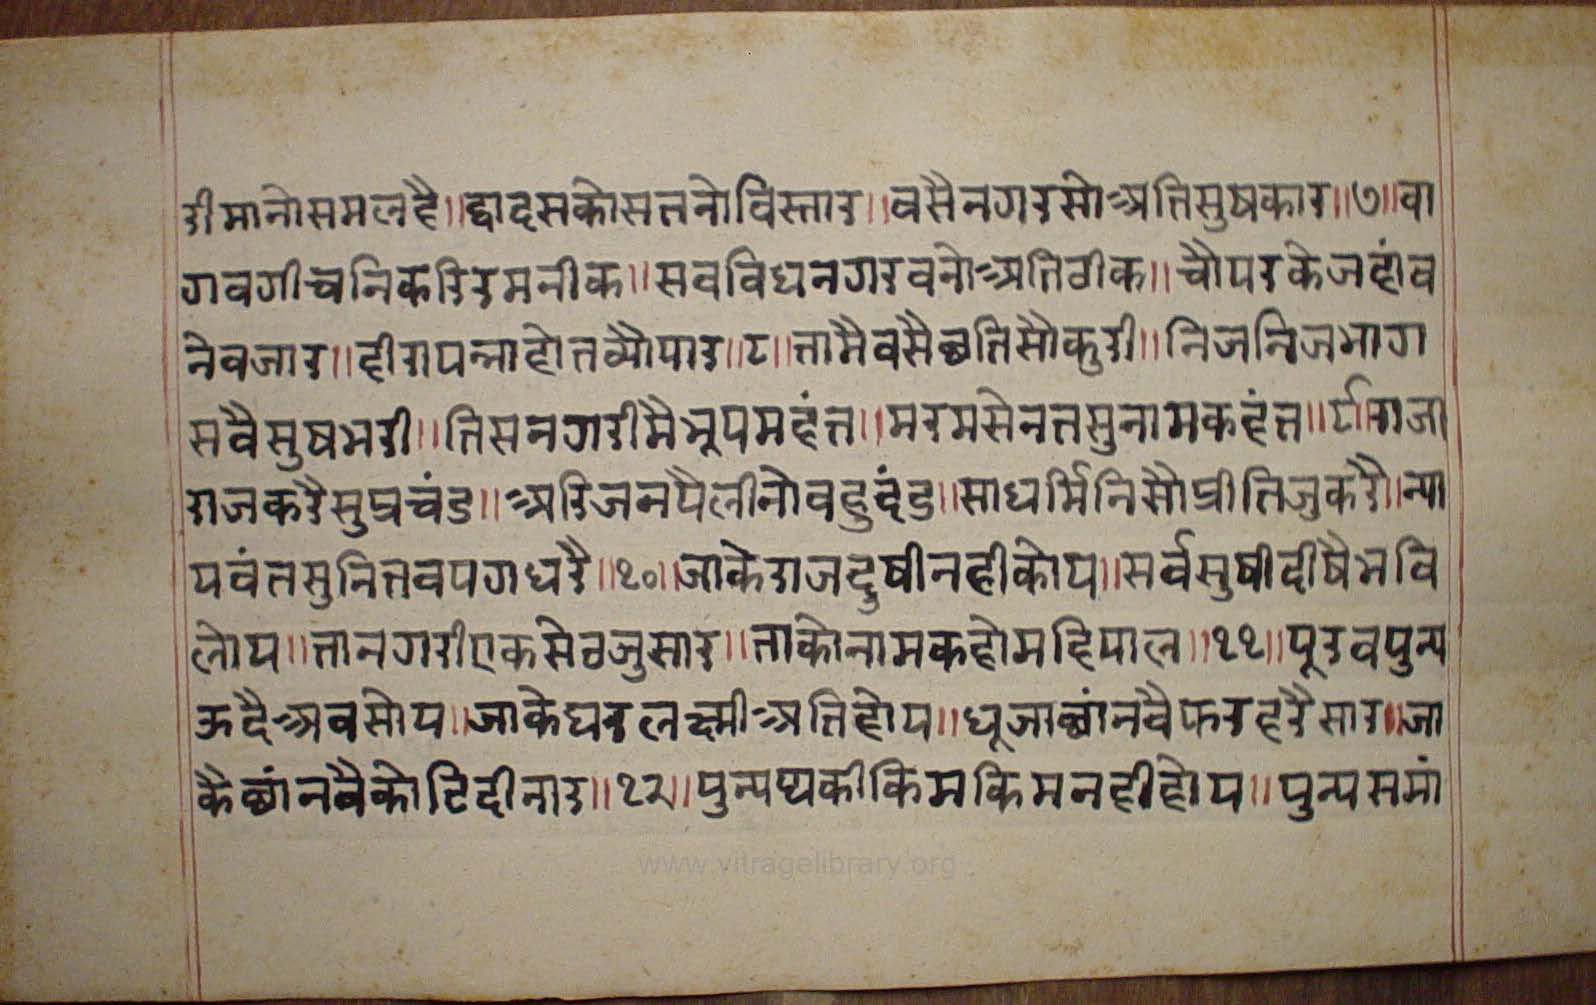 रीमानोसमलहै॥द्वादसकोसतनोविस्तार॥वसैनगरसोअतिसुषकार॥७॥वा
गवगीचनिकरिरमनीक॥सवविधनगरवनोअतिठीक॥चौपरकेजहांव
नेवजार॥हीरापन्नाहोतव्यौपार॥८॥तामैवसैछतिसौकुरी॥निजनिजभाग
सवैसुषभरी॥तिसनगरीमैभूपमहंत॥मरमसेनतसुनामकहंत॥९॥राजा
राजकरैसुप्रचंड॥अरिजनपैलीनोवहुदंड॥साधर्मिनिसौप्रीतिजुकरै॥न्या
यवंतसुनितवपगधरै॥१०॥जाकेराजदुषीनहीकोय॥सर्वसुषीदीषैभवि
लोय॥तानगरीएकसेठजुसार॥ताकोनामकहोमहिपाल॥११॥पूरवपुन्य
ऊदैअवसोय॥जाकेघरलक्ष्मीअतिहोय॥धूजाछांनवैफरहरैसार॥जा
कैछांनवैकोटिदीनार॥१२॥पुन्यथकीकिमकिमनहीहोय॥पुन्यसमां
www.vitragelibrary.org